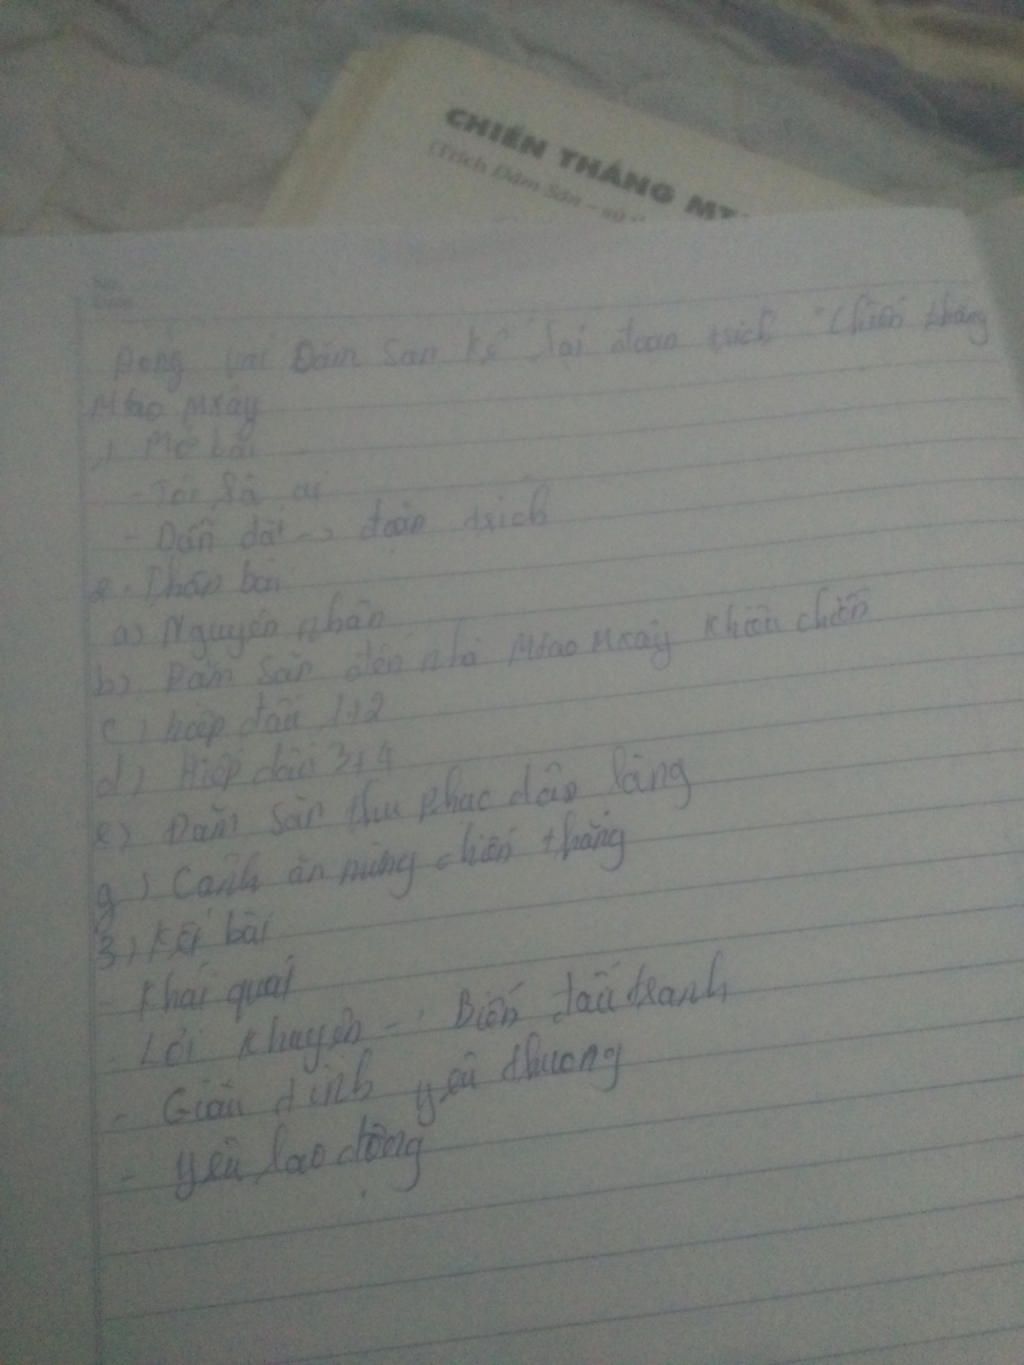 CHIẾN THẮNG MT
(Trích Đăm Săn – sử
No.
Date
Đóng vai Đăm Săn kể lại đoạn trích "Chiến thắng
Mtao Mxây
1) Mở bài
- Tôi là ai
- Dẫn dắt -> đoạn trích
2. Thân bài
a) Nguyên nhân
b) Đăm Săn đến nhà Mtao Mxây khiêu chiến
c) hiệp đấu 1+2
d) Hiệp đấu 3+4
e) Đăm Săn thu phục dân làng
g) Cảnh ăn mừng chiến thắng
3) Kết bài
- Khái quát
- Lời khuyên - Biến đấu tranh
- Giàu tình yêu thương
- yêu lao động